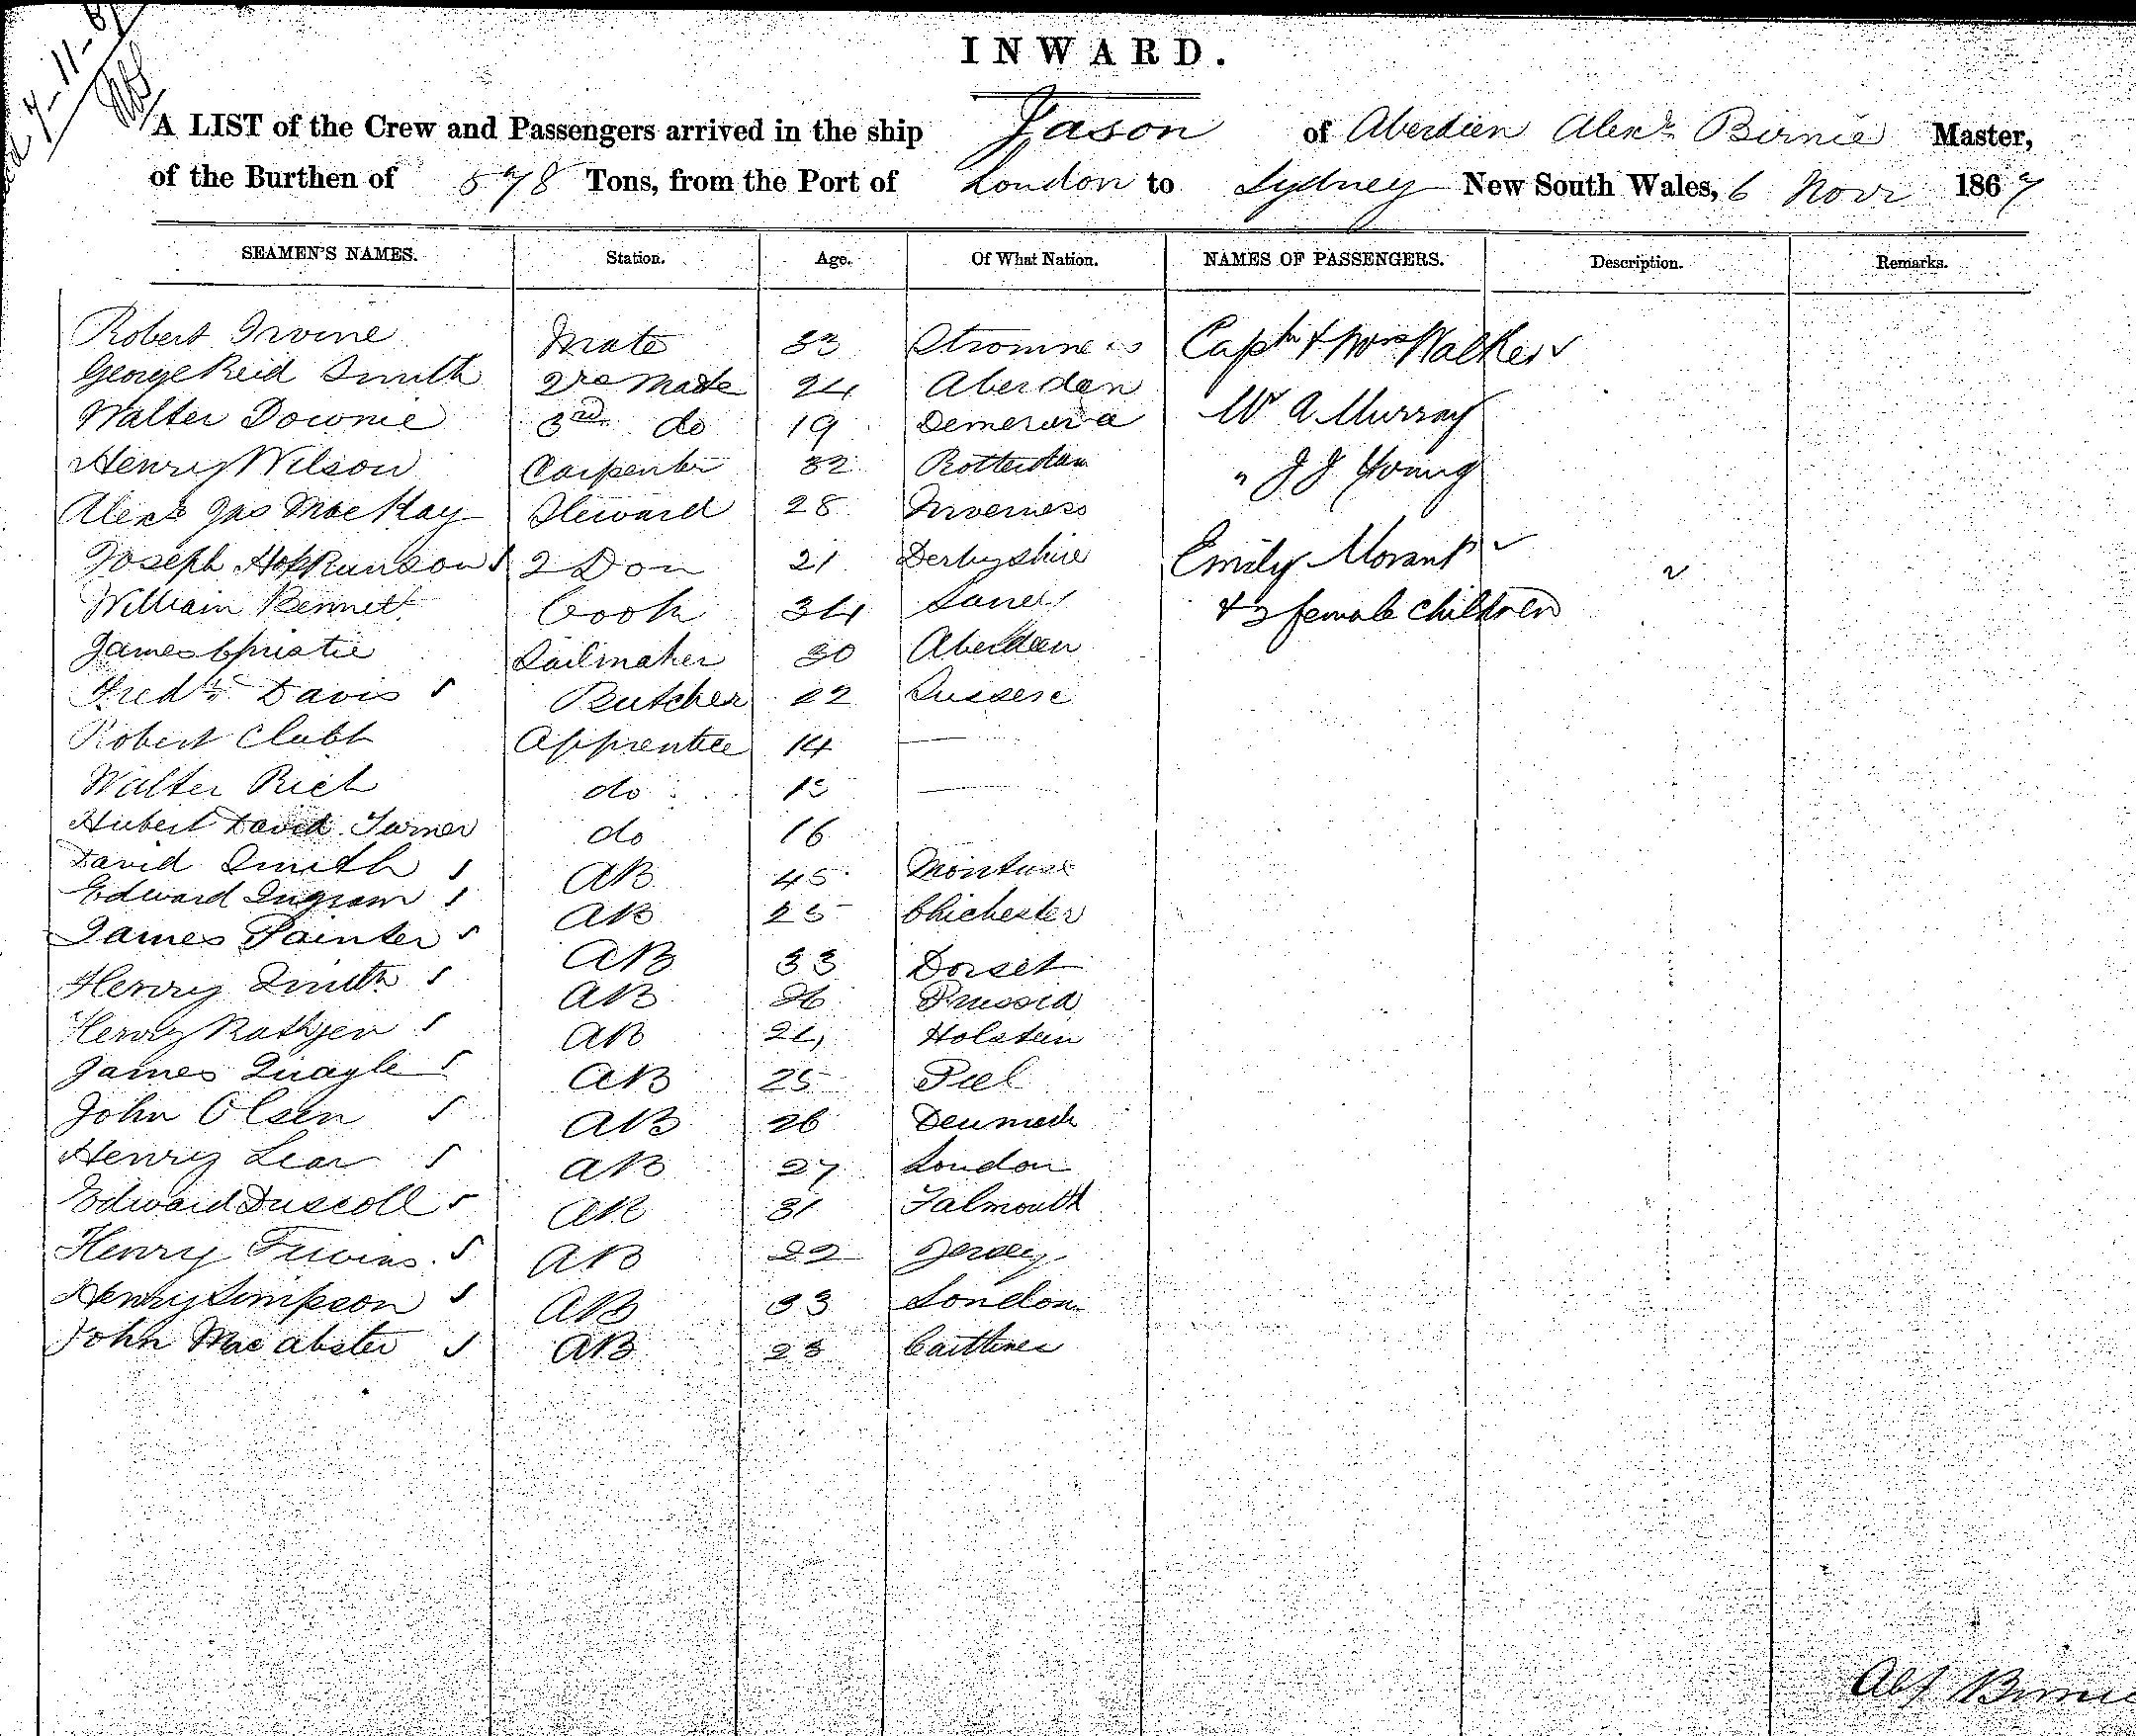 7-11-67
INWARD.
A LIST of the Crew and Passengers arrived in the ship Jason of Aberdeen Alexr Birnie Master,
of the Burthen of 578 Tons, from the Port of London to Sydney New South Wales, 6 Novr 1867
SEAMEN'S NAMES. Station. Age. Of What Nation. NAMES OF PASSENGERS. Description. Remarks.
Robert Irvine Mate 33 Stromness Captn & Mrs Walker
George Reid Smith 2nd Mate 24 Aberdeen
Walter Downie 3rd do 19 Demerara Mr A Murray
Henry Wilson Carpenter 32 Rotterdam " J J Young
Alexr Jas MacKay Steward 28 Inverness
Joseph Hopkinson 2 Don 21 Derbyshire Emily Morant
William Bennett Cook 34 & 2 female children
James Christie Sailmaker 30 Aberdeen
Fredk Davis Butcher 22 Sussex
Robert Clubb Apprentice 14 —
Walter Rich do 15 —
Hubert David Turner do 16
David Smith AB 45 Montrose
Edward Ingram AB 25 Chichester
James Painter AB 33 Dorset
Henry Smith AB 26 Prussia
Henry Rathjen AB 24 Holstein
James Quayle AB 25 Peel
John Olsen AB 26 Denmark
Henry Lear AB 27 London
Edward Driscoll AB 31 Falmouth
Henry AB 22 Jersey
Henry Simpson AB 33 London
John Mac abster AB 23 Caithnes
Alx Birnie